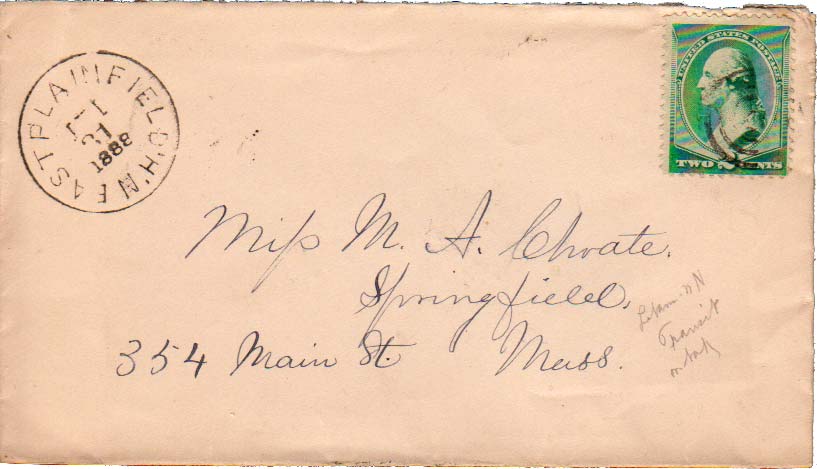 EAST PLAINFIELD N.H.
1888
UNITED STATES POSTAGE
TWO 2 CENTS
Miss M. A. Choate.
Springfield,
354 Main St. Mass.
Transit
on back